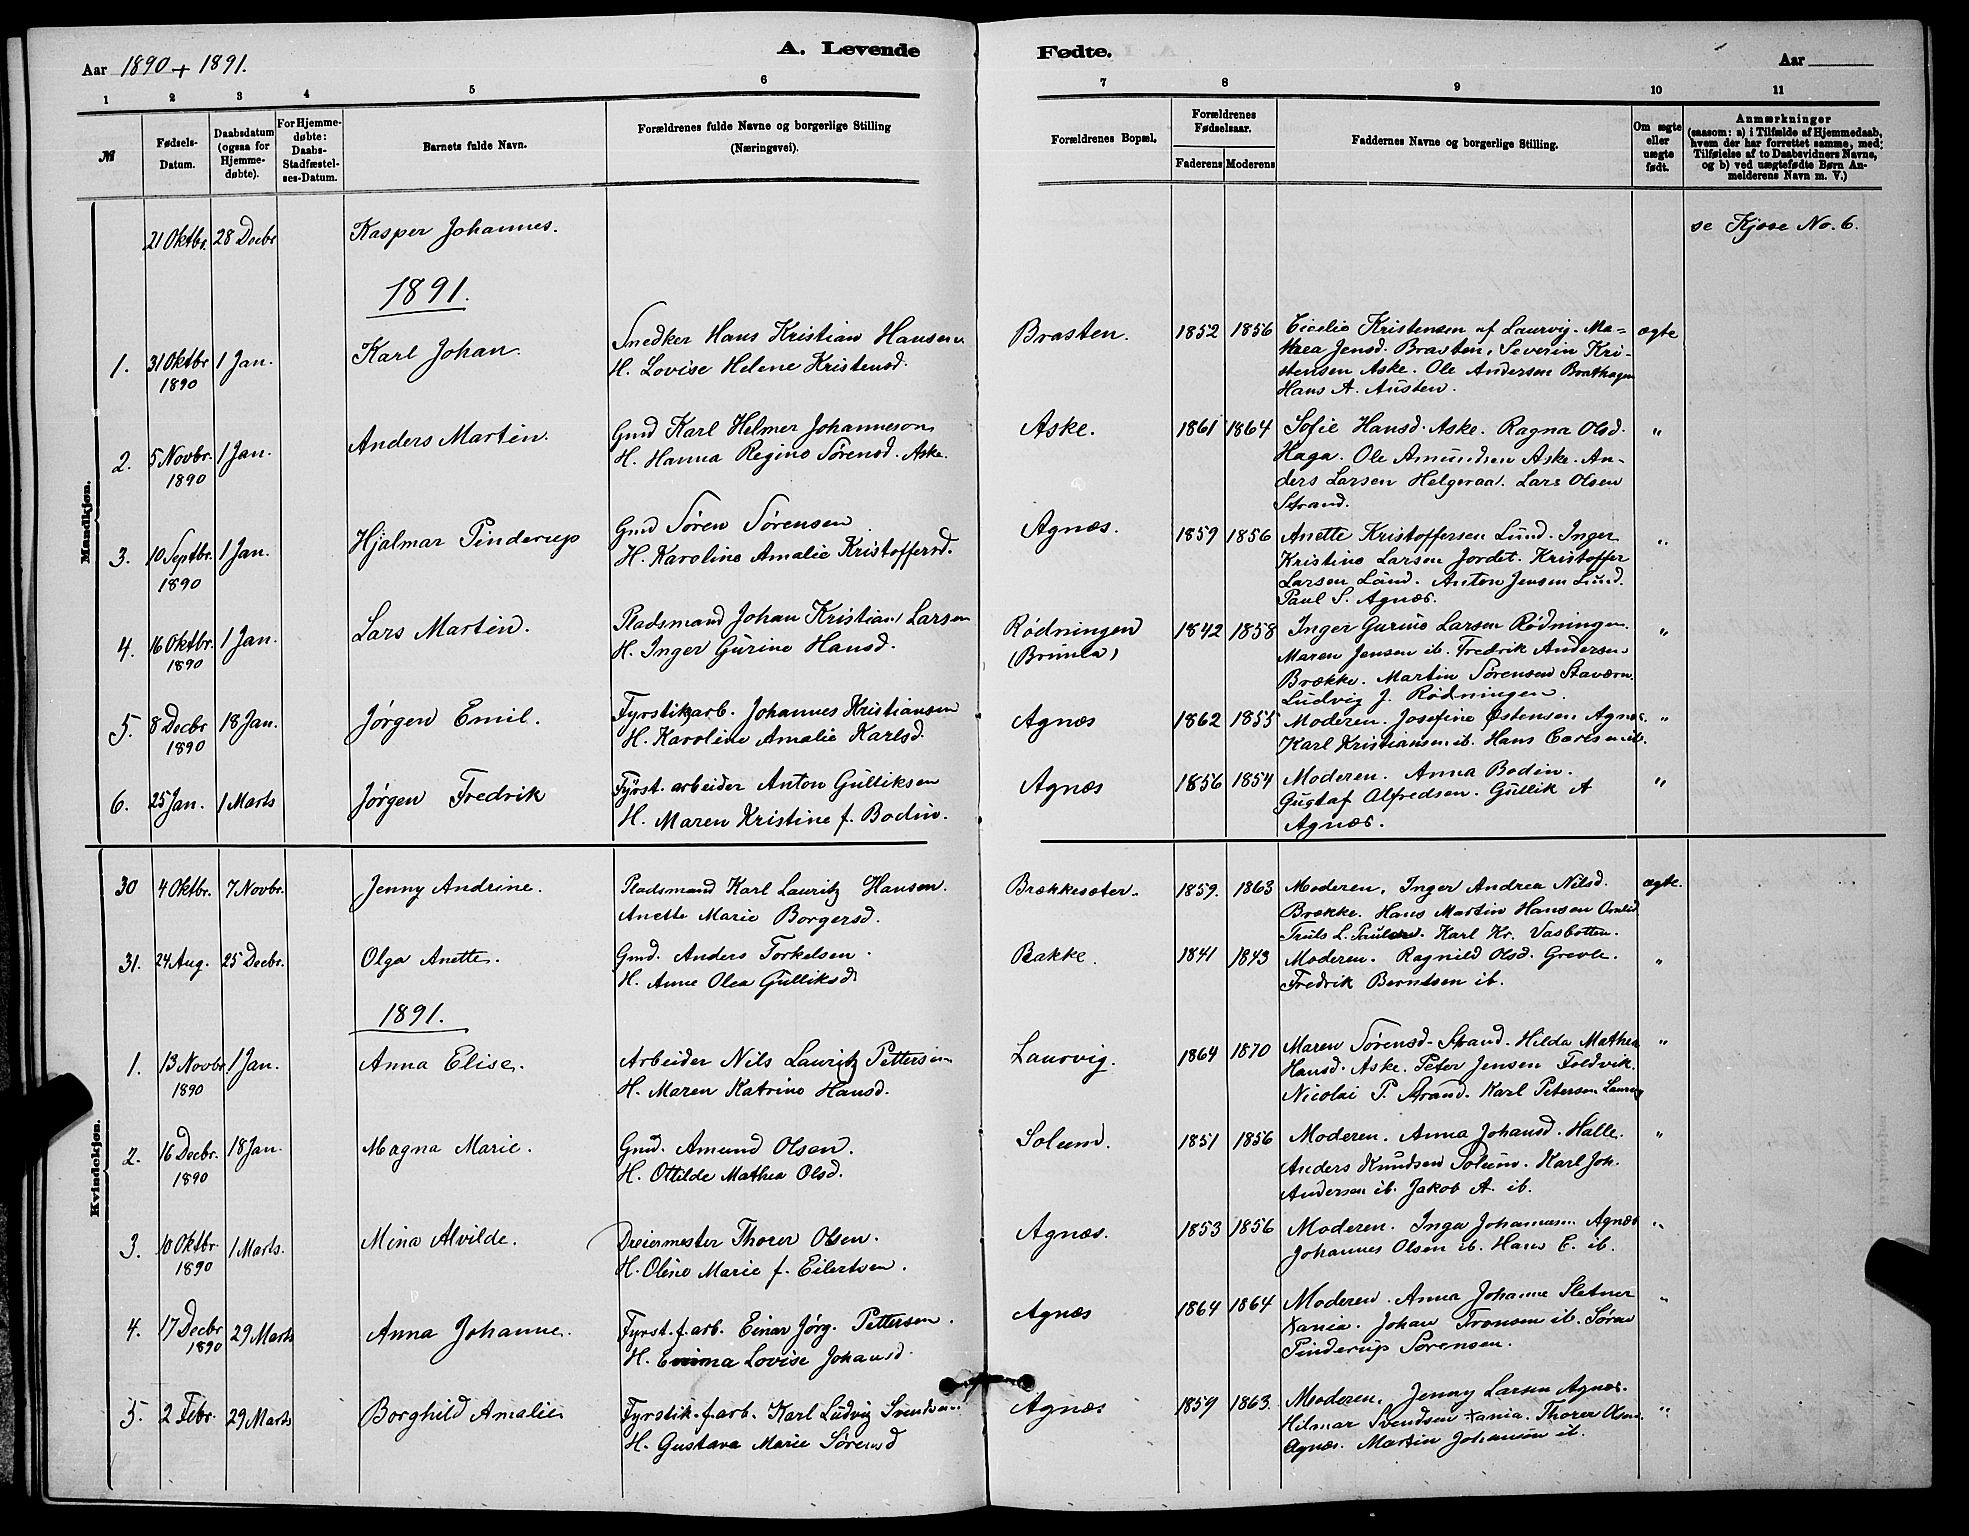 Aar 1890 + 1891.
A. Levende Fødte.
Aar
1 2 3 4 5 6 7 8 9 10 11
№
Fødsels-Datum.
Daabsdatum (ogsaa for Hjemme-døbte).
For Hjemme-døbte: Daabs-Stadfæstel-ses-Datum.
Barnets fulde Navn.
Forældrenes fulde Navne og borgerlige Stilling (Næringsvei).
Forældrenes Bopæl.
Forældrenes Fødselsaar.
Faderens Moderens
Faddernes Navne og borgerlige Stilling.
Om ægte eller uægte født.
Anmærkninger
(saasom: a) i Tilfælde af Hjemmedaab,
hvem der har forrettet samme, med
Tilføielse af to Daabsvidners Navne,
og b) ved uægtefødte Børn An-
melderens Navn m. V.)
Mandkjøn.
21 Oktbr. 28 Decbr Kasper Johannes. se Kjose No. 6.
1891.
1. 31 Oktbr 1890 1 Jan. Karl Johan. Snedker Hans Kristian Hansen
H. Lovise Helene Kristensd.
Brasten. 1852 1856 Cicelie Kristensen af Laurvig. Ma- ægte
thea Jensd. Brasten. Severin Kri-
stensen Aske. Ole Andersen Brathagen
Hans A. Austen.
2. 5 Novbr. 1890 1 Jan. Anders Martin. Gmd Karl Helmer Johannesen
H. Hanna Regine Sørensd. Aske.
Aske. 1861 1864 Sofie Hansd. Aske. Ragna Olsd. "
Haga. Ole Asmundsen Aske. An-
ders Larsen Helgeraa. Lars Olsen
Strand.
3. 10 Septbr. 1890 1 Jan. Hjalmar Pinderup Gmd Søren Sørensen
H. Karoline Amalie Kristoffersd.
Agnæs. 1859 1856 Anette Kristoffersen Lund. Inger "
Kristine Larsen Jordet. Kristoffer
Larsen Lund. Anton Jensen Lund.
Paul S. Agnæs.
4. 16 Oktbr. 1890 1 Jan. Lars Martin. Pladsmand Johan Kristian Larsen
H. Inger Gurine Hansd.
Rødningen (Brunla) 1842 1858 Inger Gurine Larsen Rødningen. "
Maren Jensen ib. Fredrik Andersen
Brække. Martin Sørensen Staværn.
Ludvig J. Rødningen.
5. 8 Decbr 1890 18 Jan. Jørgen Emil. Fyrstikarb. Johannes Kristiansen
H. Karoline Amalie Karlsd.
Agnæs 1862 1855 Moderen. Josefine Østensen Agnæs. "
Karl Kristiansen ib. Hans Carlsen ib.
6. 25 Jan. 1 Marts Jørgen Fredrik Fyrst. arbeider Anton Gulliksen
H. Maren Kristine f. Bodin.
Agnæs 1856 1854 Moderen. Anna Bodin. "
Gustaf Alfredsen. Gullik A
Agnæs.
Kvindekjøn.
30 4 Oktbr. 7 Novbr. Jenny Andrine. Pladsmand Karl Lauritz Hansen.
Anette Marie Borgersd.
Brækkesæter. 1859. 1863 Moderen, Inger Andrea Nilsd. ægte.
Brække. Hans Martin Hansen
Truls L. Karl Kr. Vasbotten.
31. 24 Aug. 25 Decbr. Olga Anette. Gmd. Anders Torkelsen.
H. Anne Olea Gulliksd
Bakke. 1841 1843 Moderen. Ragnild Olsd. Grevle. "
Fredrik Berntsen ib.
1891.
1. 13 Novbr 1890 1 Jan. Anna Elise. Arbeider Nils Lauritz Pettersen
H. Maren Katrine Hansd.
Laurvig. 1864 1870 Maren Sørensd. Strand. Hilda Mathea "
Hansd. Aske. Peter Jensen Foldvik.
Nicolai P. Strand. Karl Petersen Laurvig
2. 16 Decbr. 1890 18 Jan. Magna Marie. Gmd. Amund Olsen.
H. Ottilde Mathea Olsd.
Solum. 1851 1856 Moderen. Anna Johansd. Halle. "
Anders Knudsen Solum. Karl Joh.
Andersen ib. Jakob A. ib.
3. 10 Oktbr 1890 1 Marts. Mina Alvilde. Dreiermester Thorer Olsen.
H. Oline Marie f. Eilertsen.
Agnæs. 1853 1856 Moderen. Inga Johannesen Agnæs "
Johannes Olsen ib. Hans E. ib.
4. 17 Decbr 1890 29 Marts Anna Johanne. Fyrst. f. arb. Einar Jørg. Pettersen.
H. Emma Lovise Johansd.
Agnæs 1864 1864 Moderen. Anna Johanne Sletner "
Xania. Johan Tronsen ib. Søren
Pinderup Sørensen.
5. 2 Febr. 29 Marts Borghild Amalie Fyrstik. f. arb. Karl Ludvig Svendsen
H. Gustava Marie Sørensd
Agnæs 1859 1863. Moderen, Jenny Larsen Agnæs. "
Hilmar Svendsen Xania. Thorer Olsen
Agnæs. Martin Johansen ib.